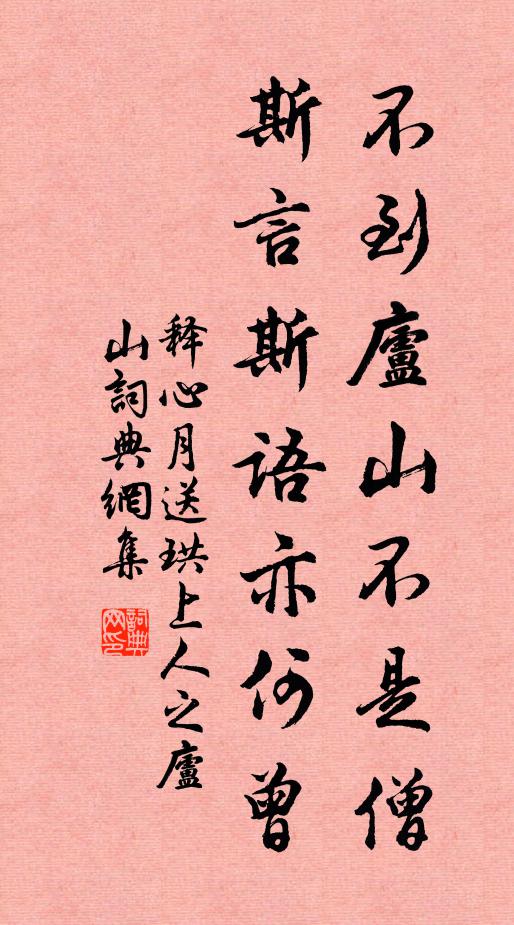 不到廬山不是僧
斯言斯語亦何曾
释心月送珙上人之廬
山詞典網集
詞典网印